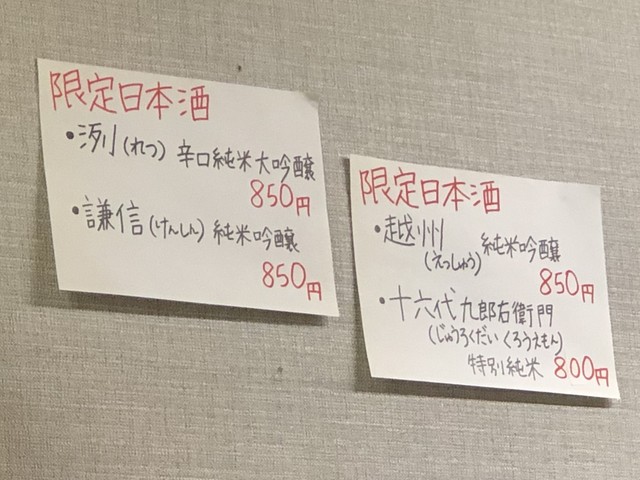 限定日本酒
・洌(れつ) 辛口純米大吟醸
850円
・謙信(けんしん) 純米吟醸
850円
限定日本酒
・越州 純米吟醸
(えっしゅう) 850円
・十六代九郎右衛門
(じゅうろくだい くろうえもん)
特別純米 800円